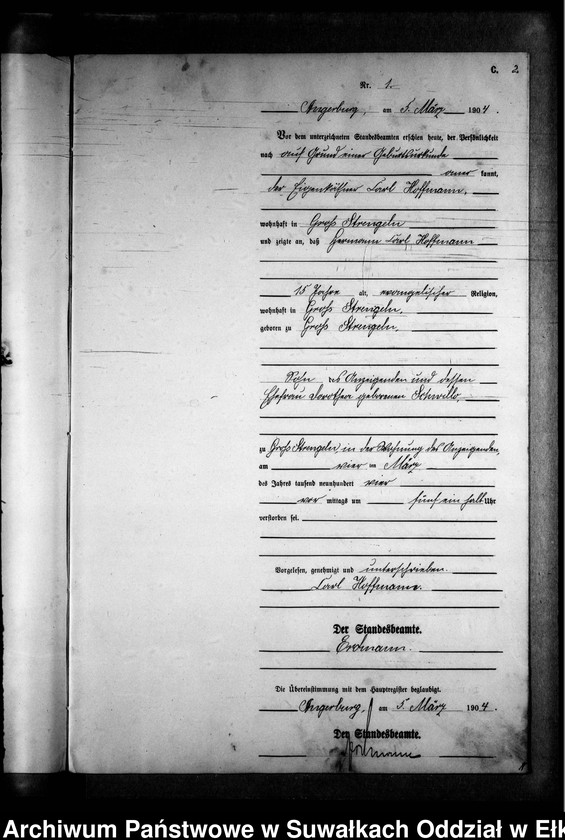 C. 2.
Nr. 1.
Angerburg, am 5. März 1904.
Vor dem unterzeichneten Standesbeamten erschien heute, der Persönlichkeit
nach auf Grund einer Geburtsurkunde
aner kannt,
der Eigenkäthner Carl Hoffmann,
wohnhaft in Groß Strengeln
und zeigte an, daß Hermann Carl Hoffmann
15 Jahre alt, evangelischer Religion,
wohnhaft in Groß Strengeln,
geboren zu Groß Strengeln,
Sohn des Anzeigenden und dessen
Ehefrau Dorothea geborenen
zu Groß Strengeln in der Wohnung des Anzeigenden,
am vier ten März
des Jahres tausend neunhundert vier
vor mittags um fünf ein halb Uhr
verstorben sei.
Vorgelesen, genehmigt und unterschrieben.
Carl Hoffmann.
Der Standesbeamte.
Erdmann.
Die Übereinstimmung mit dem Hauptregister beglaubigt.
Angerburg, am 5. März 1904.
Der Standesbeamte.
Erdmann
Archiwum Państwowe w Suwałkach Oddział w Ełk